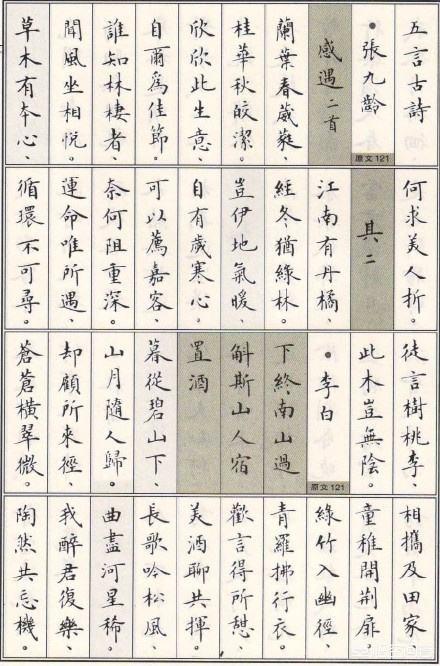 五言古詩
•張九齡
感遇二首
原文121
蘭葉春葳蕤、
桂華秋皎潔。
欣欣此生意、
自爾爲佳節。
誰知林棲者、
聞風坐相悅。
草木有本心、
何求美人折。
其二
江南有丹橘、
經冬猶綠林。
豈伊地氣暖、
自有歲寒心。
可以薦嘉客、
奈何阻重深。
運命唯所遇、
循環不可尋。
徒言樹桃李
此木豈無陰。
•李白
原文121
下終南山過
斛斯山人宿
置酒
暮從碧山下、
山月隨人歸。
却顧所來徑、
蒼蒼橫翠微。
相攜及田家
童稚開荊扉。
綠竹入幽徑、
青蘿拂行衣。
歡言得所憩、
美酒聊共揮。
長歌吟松風、
曲盡河星稀。
我醉君復樂、
陶然共忘機。